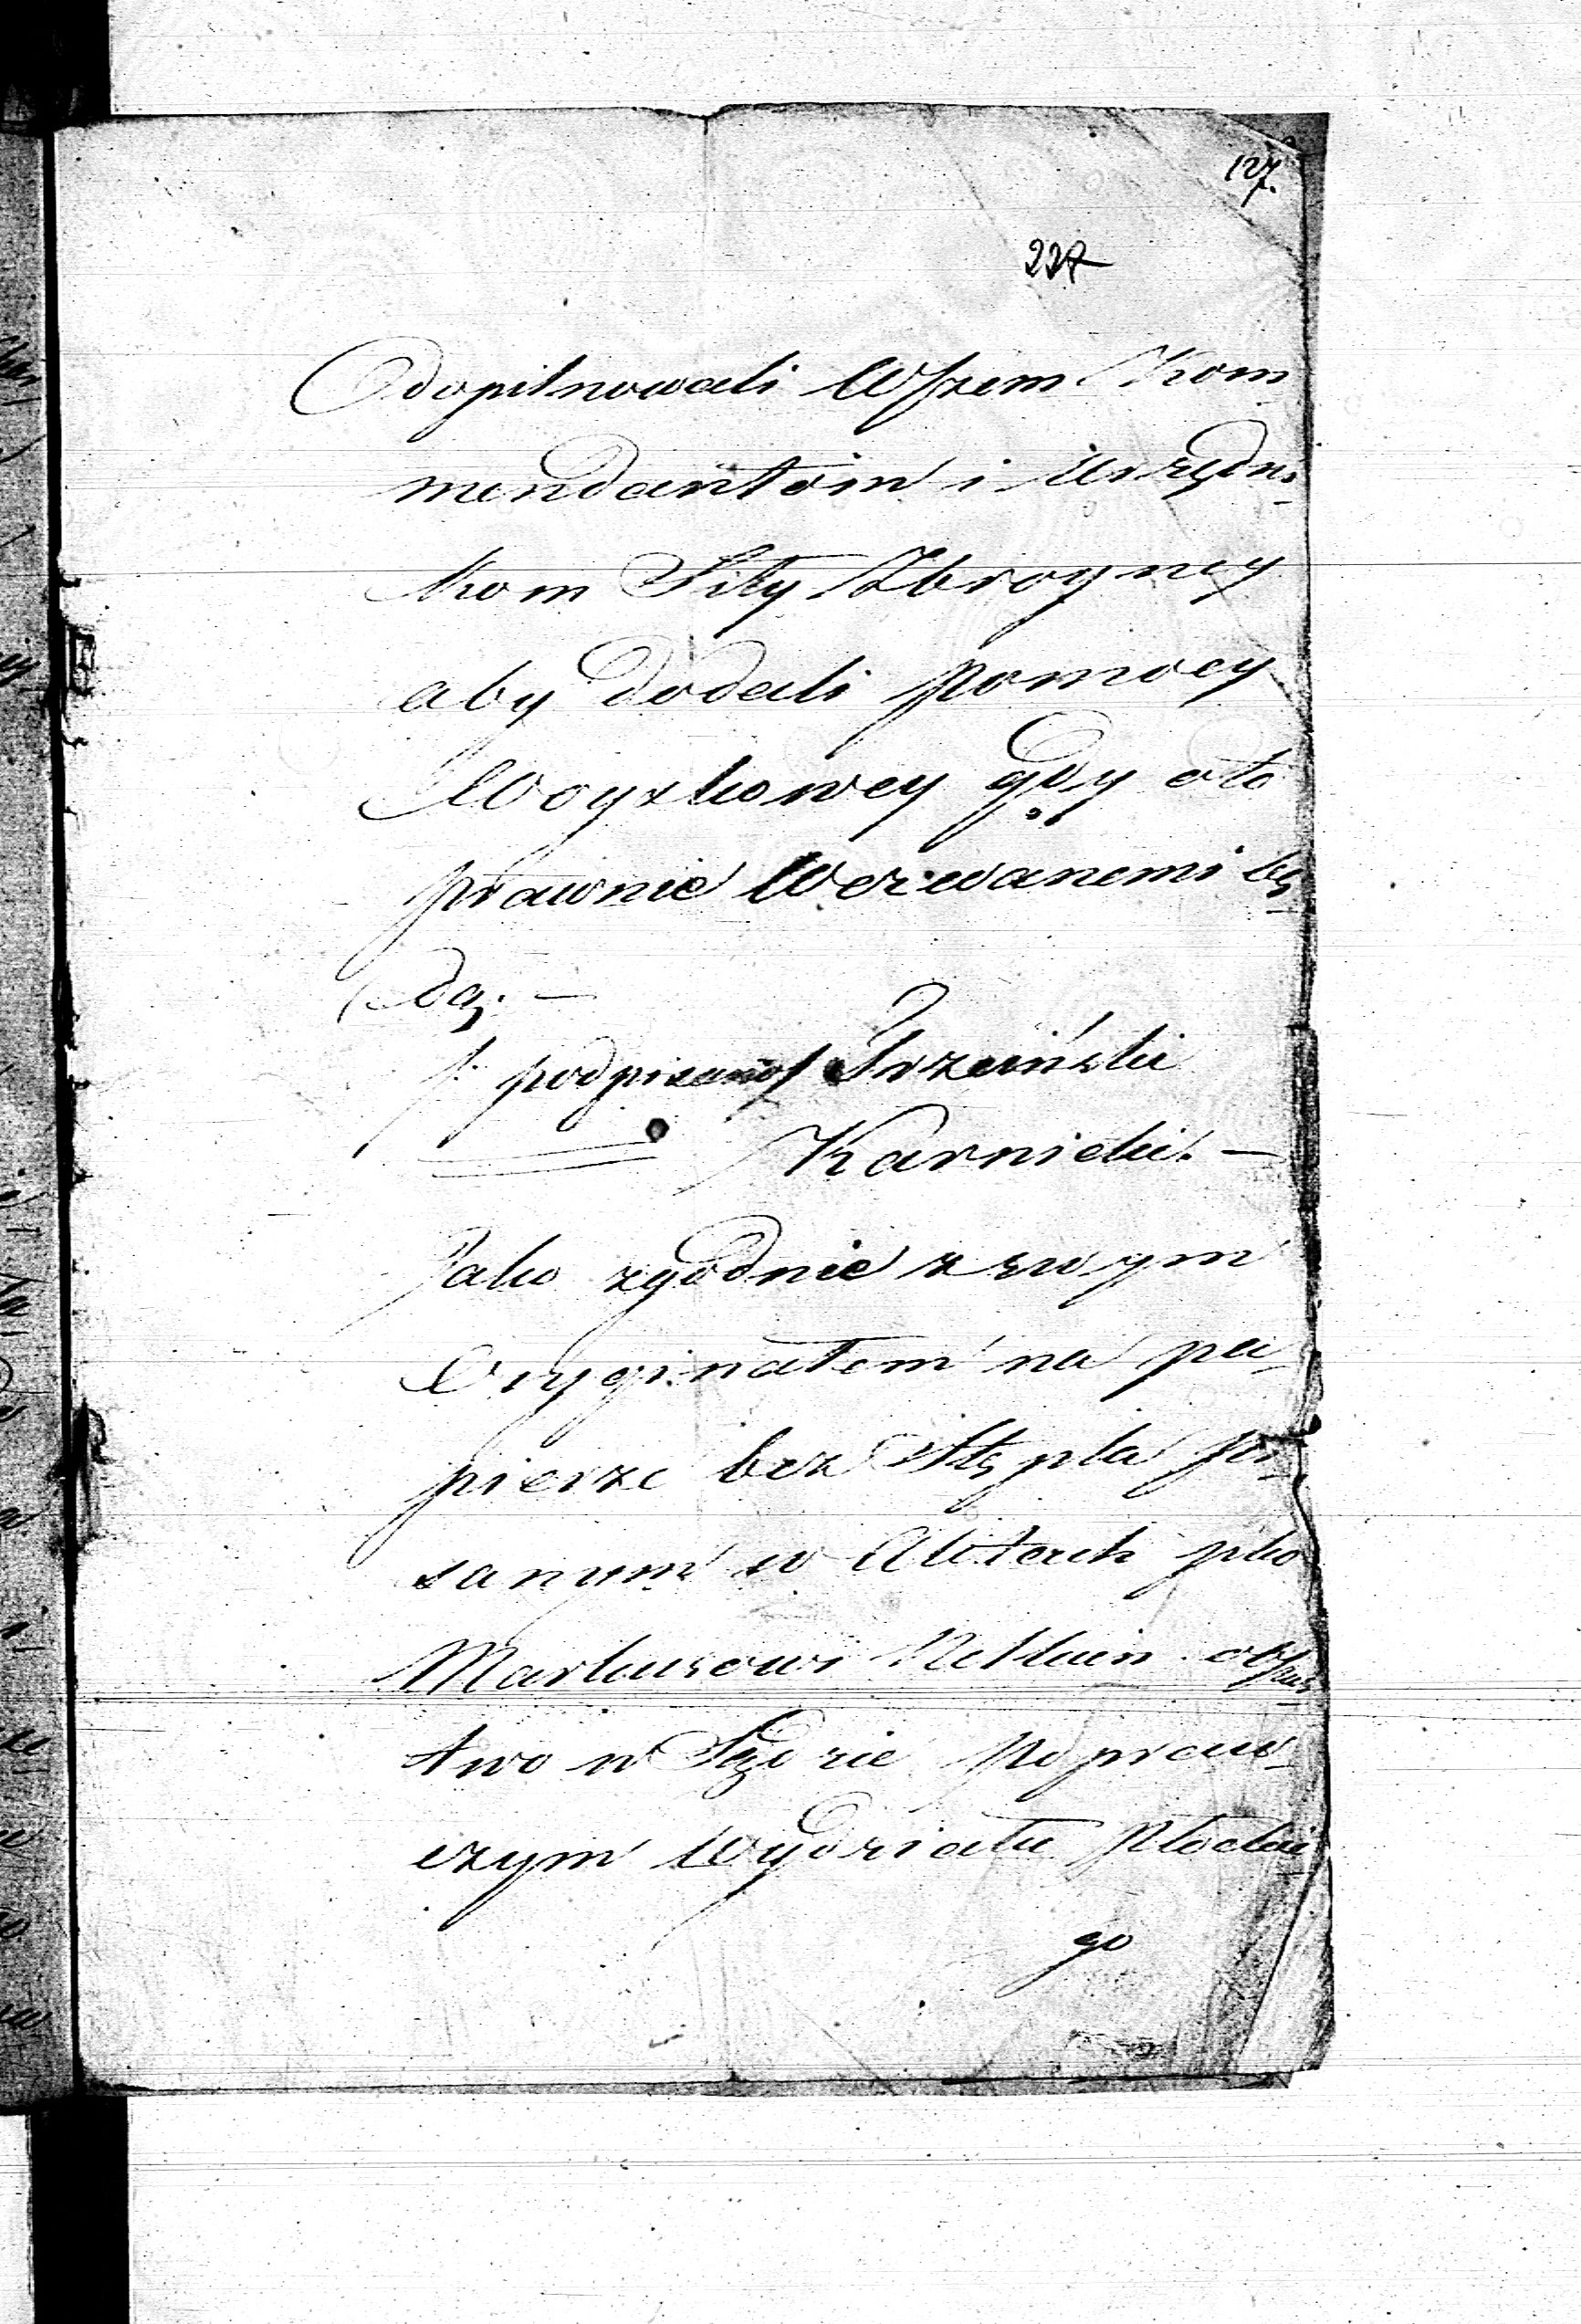 127.
227
dopilnowali Wszem Kom
mendantóm i Urzędni
kom Siły Zbroyney
aby dodali pomocy
Woyskowey gdy oto
prawnie Wezwanemi bę
dą. —
/: podpisano/
Karnicki. —
Jako zgodnie z swym
Oryginałem na pa
pierze bez Stępla pi
sanym w Aktach pko
Markusowi o oszus
two w Sądzie Popraw
czym Wydziału Płockie
go